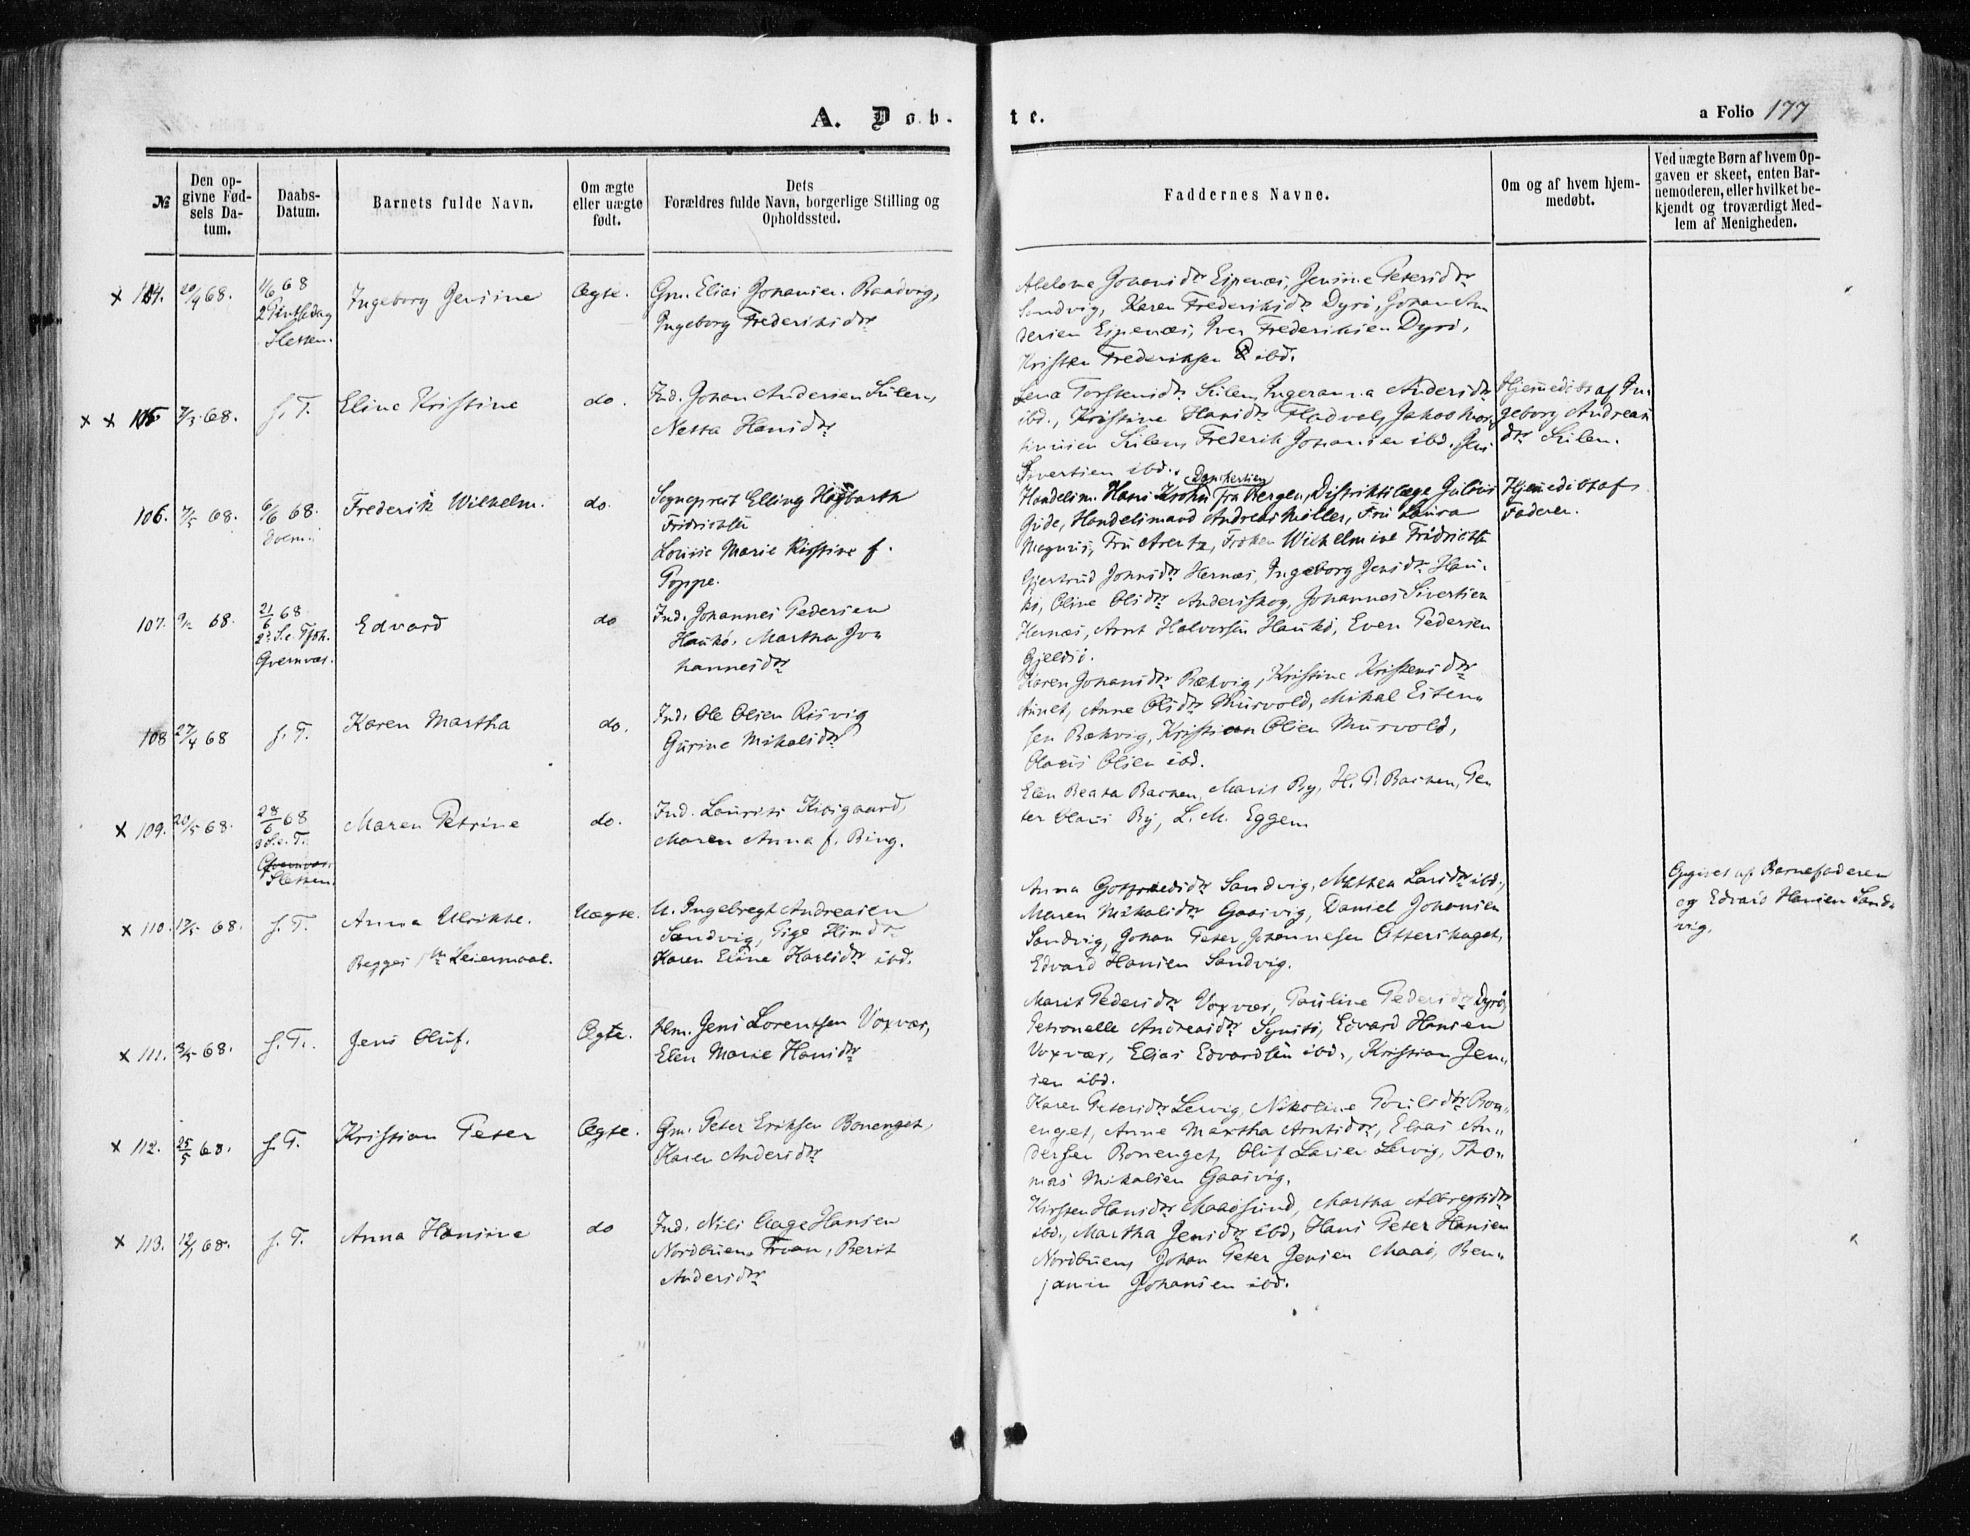 A. Døb-
te.
a Folio 177
№
Den op-
givne Fød-
sels Da-
tum.
Daabs-
Datum.
Barnets fulde Navn.
Om ægte
eller uægte
født.
Dets
Forældres fulde Navn, borgerlige Stilling og
Opholdssted.
Faddernes Navne.
Om og af hvem hjem-
medøbt.
Ved uægte Børn af hvem Op-
gaven er skeet, enten Bar-
nemoderen, eller hvilket be-
kjendt og troværdigt Med-
lem af Menigheden.
x 104.
20/4 68.
1/6 68
2 Pintsedag
Sletten.
Ingeborg Jensine
Ægte.
Gm. Elias Johansen Baadvig,
Ingeborg Frederiksdtr
Johansdtr Espenæs, Jensine Petersdtr
Sandvig, Karen Frederiksdtr Dyrø, Johan An
dersen Espenæs, Iver Frederiksen Dyrø,
Kristen Frederiksen ibd.
x x 105
7/3 68.
s. T.
Eline Kristine
do.
Ind. Johan Andersen Sulen,
Netta Hansdtr
Lena Torstensdtr Sulen, Ingeranna Andersdtr
ibd., Kristine Hansdtr Fladval, Jakob
Sulen, Frederik Johansen ibd. Jens
Sivertsen ibd.
Hjemmedøbt af In-
geborg Andreas
dtr Sulen.
106.
7/5 68.
6/6 68.
Frederik Wilhelm.
do.
Sognepræst Elling Hagbarth
Fridrichsen
Louise Marie Kirstine f.
Poppe.
Danckertsen
Handelsm. Hans Krohn fra Bergen, Distriktslæge Julius
Gude, Handelsmand Andreas Møller, Fru Laura
Magnus, Fru Arentz, Frøken Wilhelmine Fridrichsen
Hjemmedøbt af
Faderen.
107.
68.
21/6 68
2 S. e. Tref.
Qvernvær.
Edvard
do
Ind. Johannes Pedersen
Haukø. Martha Jo
hannesdtr
Gjertrud Johnsdtr Hernæs, Ingeborg Jensdtr Hau-
kø, Oline Olsdtr Anderskog, Johannes Sivertsen
Hernæs, Arnt Halvorsen Haukø, Even Pedersen
Gjeldsø.
108
27/4 68
s. T.
Karen Martha
do.
Ind. Ole Olsen Risvig
Gurine Mikalsdtr
Karen Johansdtr Bækvig, Kristine Kristensdtr
Aunet, Anne Olsdtr Murvold, Mikal Esten-
sen Bækvig, Kristian Olsen Murvold,
Olaus Olsen ibd.
x 109.
20/5 68.
28/6 68
3 S. e. T.
Sletten.
Maren Petrine
do.
Ind. Laurits Kirkgaard,
Maren Anna f. Bing.
Elen Beata Bachen, Marit By, H. P. Bachen, Pe
ter Olaus By, L. M. Eggen
x 110.
17/5 68.
s. T.
Anna Ulrikke.
Begges 1ste Leiermaal.
Uægte.
U. Ingebregt Andreasen
Sandvig, Pige
Karen Eline Karlsdtr ibd.
Anna Gotfredsdtr Sandvig, Mathea Larsdtr ibd.,
Maren Mikalsdtr Gaasvig, Daniel Johansen
Sandvig, Johan Peter Johannesen Otterskaget,
Edvard Hansen Sandvig.
Opgivet af Barnefaderen
og Edvard Hansen Sand-
vig.
x 111.
3/5 68.
s. T.
Jens Oluf.
Ægte.
Hm. Jens Lorentsen Voxvær,
Elen Marie Hansdtr
Marit Pedersdtr Voxvær, Pauline Pedersdtr Dyrø,
Petronelle Andreasdtr Synsti, Edvard Hansen
Voxvær, Elias Edvardsen ibd., Kristian Jen-
sen ibd.
x 112.
25/5 68.
s. T.
Kristian Peter
Ægte.
Gm. Peter Eriksen Bonenget,
Karen Andersdtr
Karen Petersdtr Lervig, Nikoline Poulsdtr Bon-
enget, Anne Martha Arntsdtr, Elias An-
dersen Bonenget, Oluf Larsen Lervig, Tho-
mas Mikalsen Gaasvig.
x 113.
12/1 68.
s. T.
Anna Hansine
do
Ind. Nils Aage Hansen
Nordbuen, Froan, Berit
Andersdtr
Kirsten Hansdtr Maasund, Martha Albregtsdtr
ibd., Martha Jensdtr ibd, Hans Peter Hansen
Nordbuen, Johan Peter Jensen Maasø, Ben-
jamin Johansen ibd.